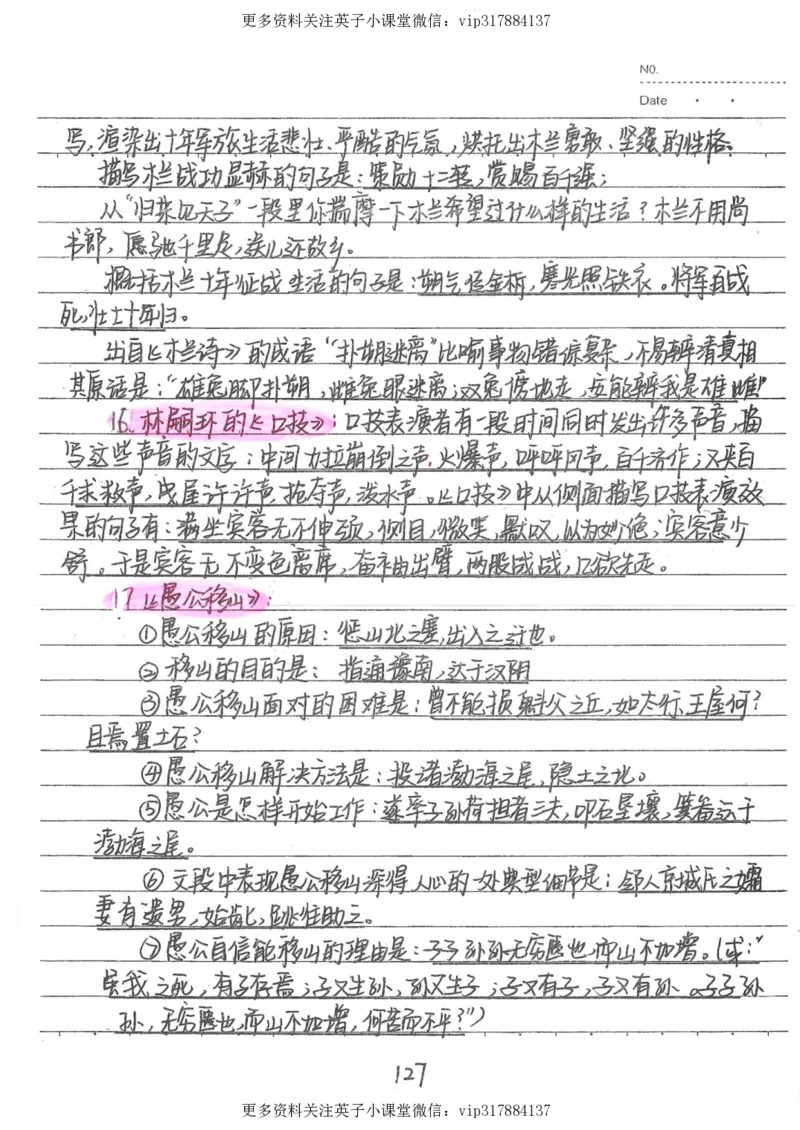 更多资料关注英子小课堂微信：vip317884137
NO.
Date
写，渲染出十年军旅生活悲壮、严酷的气氛，烘托出木兰勇敢、坚强的性格。
描写木兰战功显赫的句子是：策勋十二转，赏赐百千强；
从“归来见天子”一段里你揣摩一下木兰希望过什么样的生活？木兰不用尚
书郎，愿驰千里足，送儿还故乡。
概括木兰十年征战生活的句子是：朔气传金柝，寒光照铁衣。将军百战
死，壮士十年归。
出自《木兰诗》的成语“扑朔迷离”比喻事物错综复杂，不易辨清真相
其原话是：“雄兔脚扑朔，雌兔眼迷离；双兔傍地走，安能辨我是雄雌”
16.林嗣环的《口技》：口技表演者有一段时间同时发出许多声音，描
写这些声音的文字：中间力拉崩倒之声，火爆声，呼呼风声，百千齐作；又夹百
千求救声，曳屋许许声，抢夺声，泼水声。《口技》中从侧面描写口技表演效
果的句子有：满坐宾客无不伸颈，侧目，微笑，默叹，以为妙绝；宾客意少
舒。于是宾客无不变色离席，奋袖出臂，两股战战，几欲先走。
17.《愚公移山》：
①愚公移山的原因：惩山北之塞，出入之迂也。
②移山的目的是：指通豫南，达于汉阴
③愚公移山面对的困难是：曾不能损魁父之丘，如太行、王屋何？
且焉置土石？
④愚公移山解决方法是：投诸渤海之尾，隐土之北。
⑤愚公是怎样开始工作：遂率子孙荷担者三夫，叩石垦壤，箕畚运于
渤海之尾。
⑥文段中表现愚公移山深得人心的一处典型细节是：邻人京城氏之孀
妻有遗男，始龀，跳往助之。
⑦愚公自信能移山的理由是：子子孙孙无穷匮也，而山不加增。（或：“
虽我之死，有子存焉；子又生孙，孙又生子；子又有子，子又有孙。子子孙
孙，无穷匮也，而山不加增，何苦而不平？”）
127
更多资料关注英子小课堂微信：vip317884137